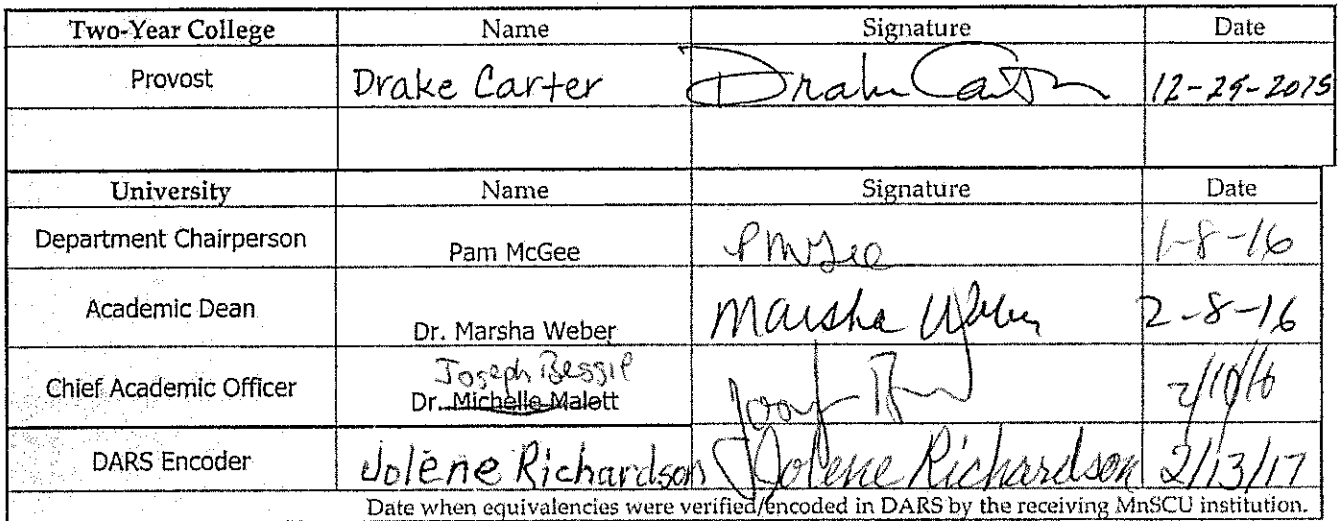 Two-Year College Name Signature Date
Provost Drake Carter Drake Carter 12-29-2015
University Name Signature Date
Department Chairperson Pam McGee PMcGee 1-8-16
Academic Dean Dr. Marsha Weber Marsha Weber 2-8-16
Joseph Bessie
Chief Academic Officer Dr. Michelle Malott 2/10/16
DARS Encoder Jolene Richardson Jolene Richardson 2/13/17
Date when equivalencies were verified/encoded in DARS by the receiving MnSCU institution.